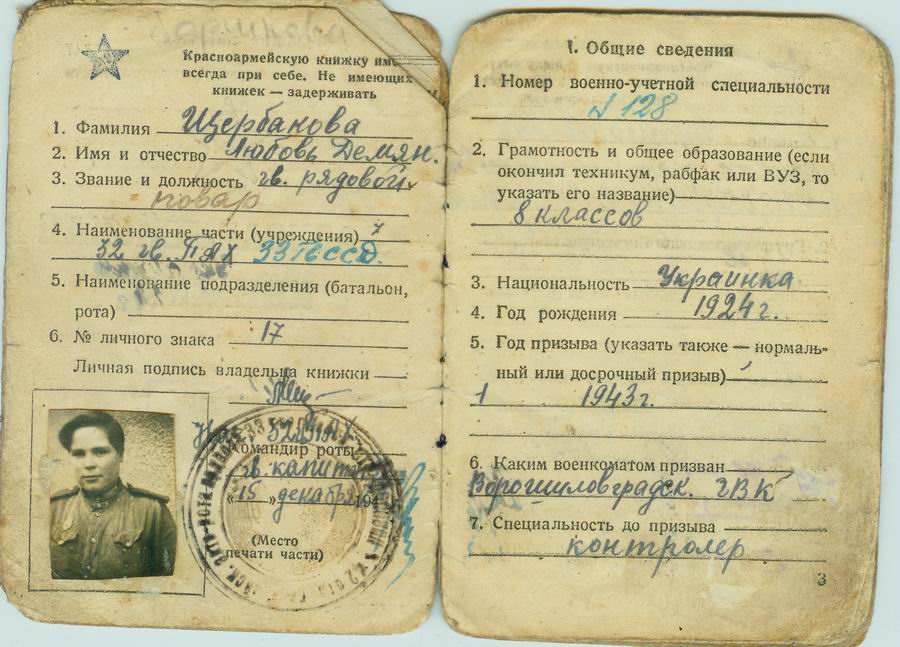 Красноармейскую книжку име
всегда при себе. Не имеющих
книжек — задерживать
1. Фамилия Щербакова
2. Имя и отчество Любовь Демян.
3. Звание и должность гв. рядовой
повар
4. Наименование части (учреждения)
32 гв.
5. Наименование подразделения (батальон,
рота)
6. № личного знака 17
Личная подпись владельца книжки
Командир роты
гв. капитан
„15 „ декабря 194
(Место
печати части)
I. Общие сведения
1. Номер военно-учетной специальности
№ 128
2. Грамотность и общее образование (если
окончил техникум, рабфак или ВУЗ, то
указать его название)
8 классов
3. Национальность Украинка
4. Год рождения 1924 г.
5. Год призыва (указать также — нормаль-
ный или досрочный призыв)
1943 г.
6. Каким военкоматом призван
Ворошиловградск. ГВК
7. Специальность до призыва
контролер
3